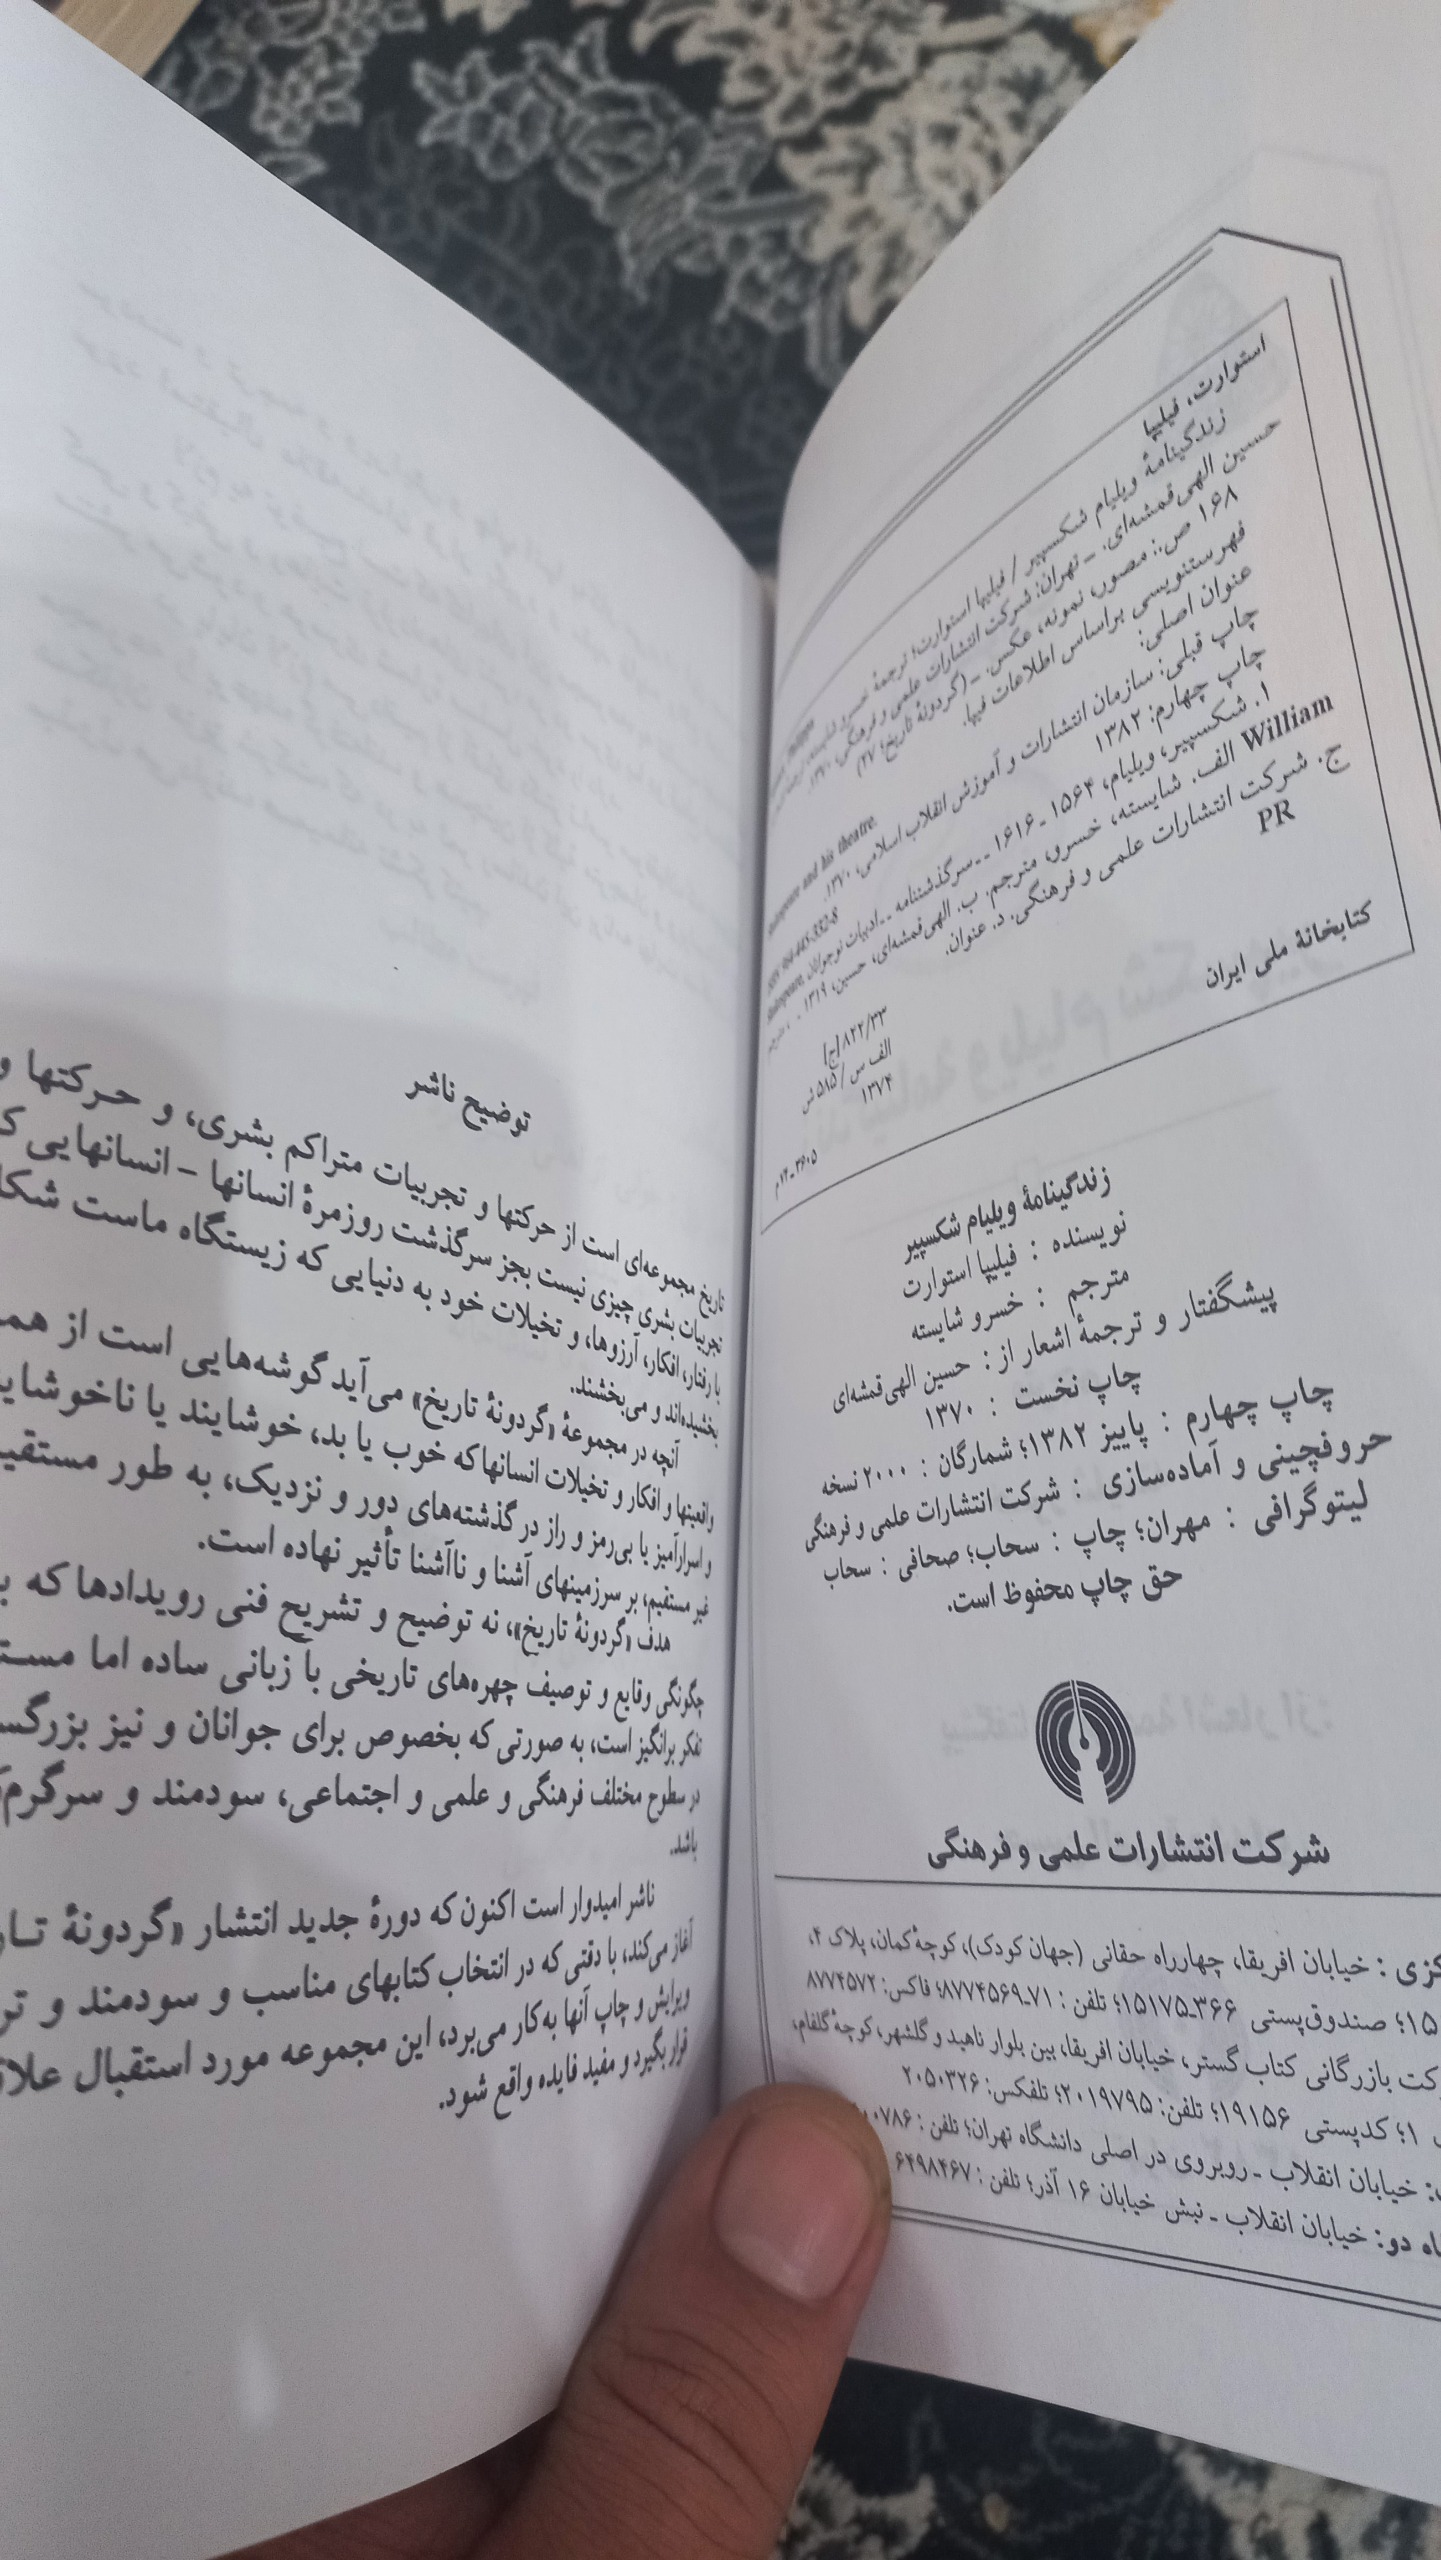 استوارت، فیلیپا
زندگینامهٔ ویلیام شکسپیر / فیلیپا استوارت؛ ترجمهٔ خسرو شایسته؛
حسین الهی‌قمشه‌ای. ـ تهران: شرکت انتشارات علمی و فرهنگی، ۱۳۷۰.
۱۶۸ ص.: مصور، نمونه، عکس. ـ (گردونهٔ تاریخ؛ ۲۷)
فهرستنویسی براساس اطلاعات فیپا.
عنوان اصلی:
and his theatre.
چاپ قبلی: سازمان انتشارات و آموزش انقلاب اسلامی، ۱۳۷۰.
چاپ چهارم: ۱۳۸۲
۱. شکسپیر، ویلیام، ۱۵۶۴ ـ ۱۶۱۶ ـ ـ سرگذشتنامه ـ ـ ادبیات نوجوانان.
William الف. شایسته، خسرو، مترجم. ب. الهی‌قمشه‌ای، حسین، ۱۳۱۹ ـ
ج. شرکت انتشارات علمی و فرهنگی. د. عنوان.
PR
۸۲۲/۳۳ [ج]
الف س / ۵۸۵ ش
۱۳۷۴
کتابخانهٔ ملی ایران
زندگینامهٔ ویلیام شکسپیر
نویسنده : فیلیپا استوارت
مترجم : خسرو شایسته
پیشگفتار و ترجمهٔ اشعار از : حسین الهی‌قمشه‌ای
چاپ نخست : ۱۳۷۰
چاپ چهارم : پاییز ۱۳۸۲؛ شمارگان : ۲۰۰۰ نسخه
حروفچینی و آماده‌سازی : شرکت انتشارات علمی و فرهنگی
لیتوگرافی : مهران؛ چاپ : سحاب؛ صحافی : سحاب
حق چاپ محفوظ است.
شرکت انتشارات علمی و فرهنگی
: خیابان افریقا، چهارراه حقانی (جهان کودک)، کوچهٔ کمان، پلاک ۴،
؛ صندوق‌پستی ۳۶۶ـ۱۵۱۷۵؛ تلفن : ۷۱ـ۸۷۷۴۵۶۹؛ فاکس: ۸۷۷۴۵۷۲
بازرگانی کتاب گستر، خیابان افریقا، بین بلوار ناهید و گلشهر، کوچهٔ گلفام،
۱؛ کدپستی ۱۹۱۵۶؛ تلفن: ۲۰۱۹۷۹۵؛ تلفکس: ۲۰۵۰۳۲۶
: خیابان انقلاب ـ روبروی در اصلی دانشگاه تهران؛ تلفن :
دو: خیابان انقلاب ـ نبش خیابان ۱۶ آذر؛ تلفن : ۶۴۹۸۴۶۷
توضیح ناشر
تاریخ مجموعه‌ای است از حرکتها و تجربیات متراکم بشری، و حرکتها و
تجربیات بشری چیزی نیست بجز سرگذشت روزمرهٔ انسانها – انسانهایی
با رفتار، افکار، آرزوها، و تخیلات خود به دنیایی که زیستگاه ماست
بخشیده‌اند و می‌بخشند.
آنچه در مجموعهٔ «گردونهٔ تاریخ» می‌آید گوشه‌هایی است از
واقعیتها و افکار و تخیلات انسانها که خوب یا بد، خوشایند یا
و اسرارآمیز یا بی‌رمز و راز در گذشته‌های دور و نزدیک، به طور
غیر مستقیم، بر سرزمینهای آشنا و ناآشنا تأثیر نهاده است.
هدف «گردونهٔ تاریخ»، نه توضیح و تشریح فنی رویدادها که
چگونگی وقایع و توصیف چهره‌های تاریخی با زبانی ساده اما
تفکر برانگیز است، به صورتی که بخصوص برای جوانان و نیز
در سطوح مختلف فرهنگی و علمی و اجتماعی، سودمند و
باشد.
ناشر امیدوار است اکنون که دورهٔ جدید انتشار «گردونهٔ
آغاز می‌کند، با دقتی که در انتخاب کتابهای مناسب و سودمند و
ویرایش و چاپ آنها به‌کار می‌برد، این مجموعه مورد استقبال
قرار بگیرد و مفید فایده واقع شود.